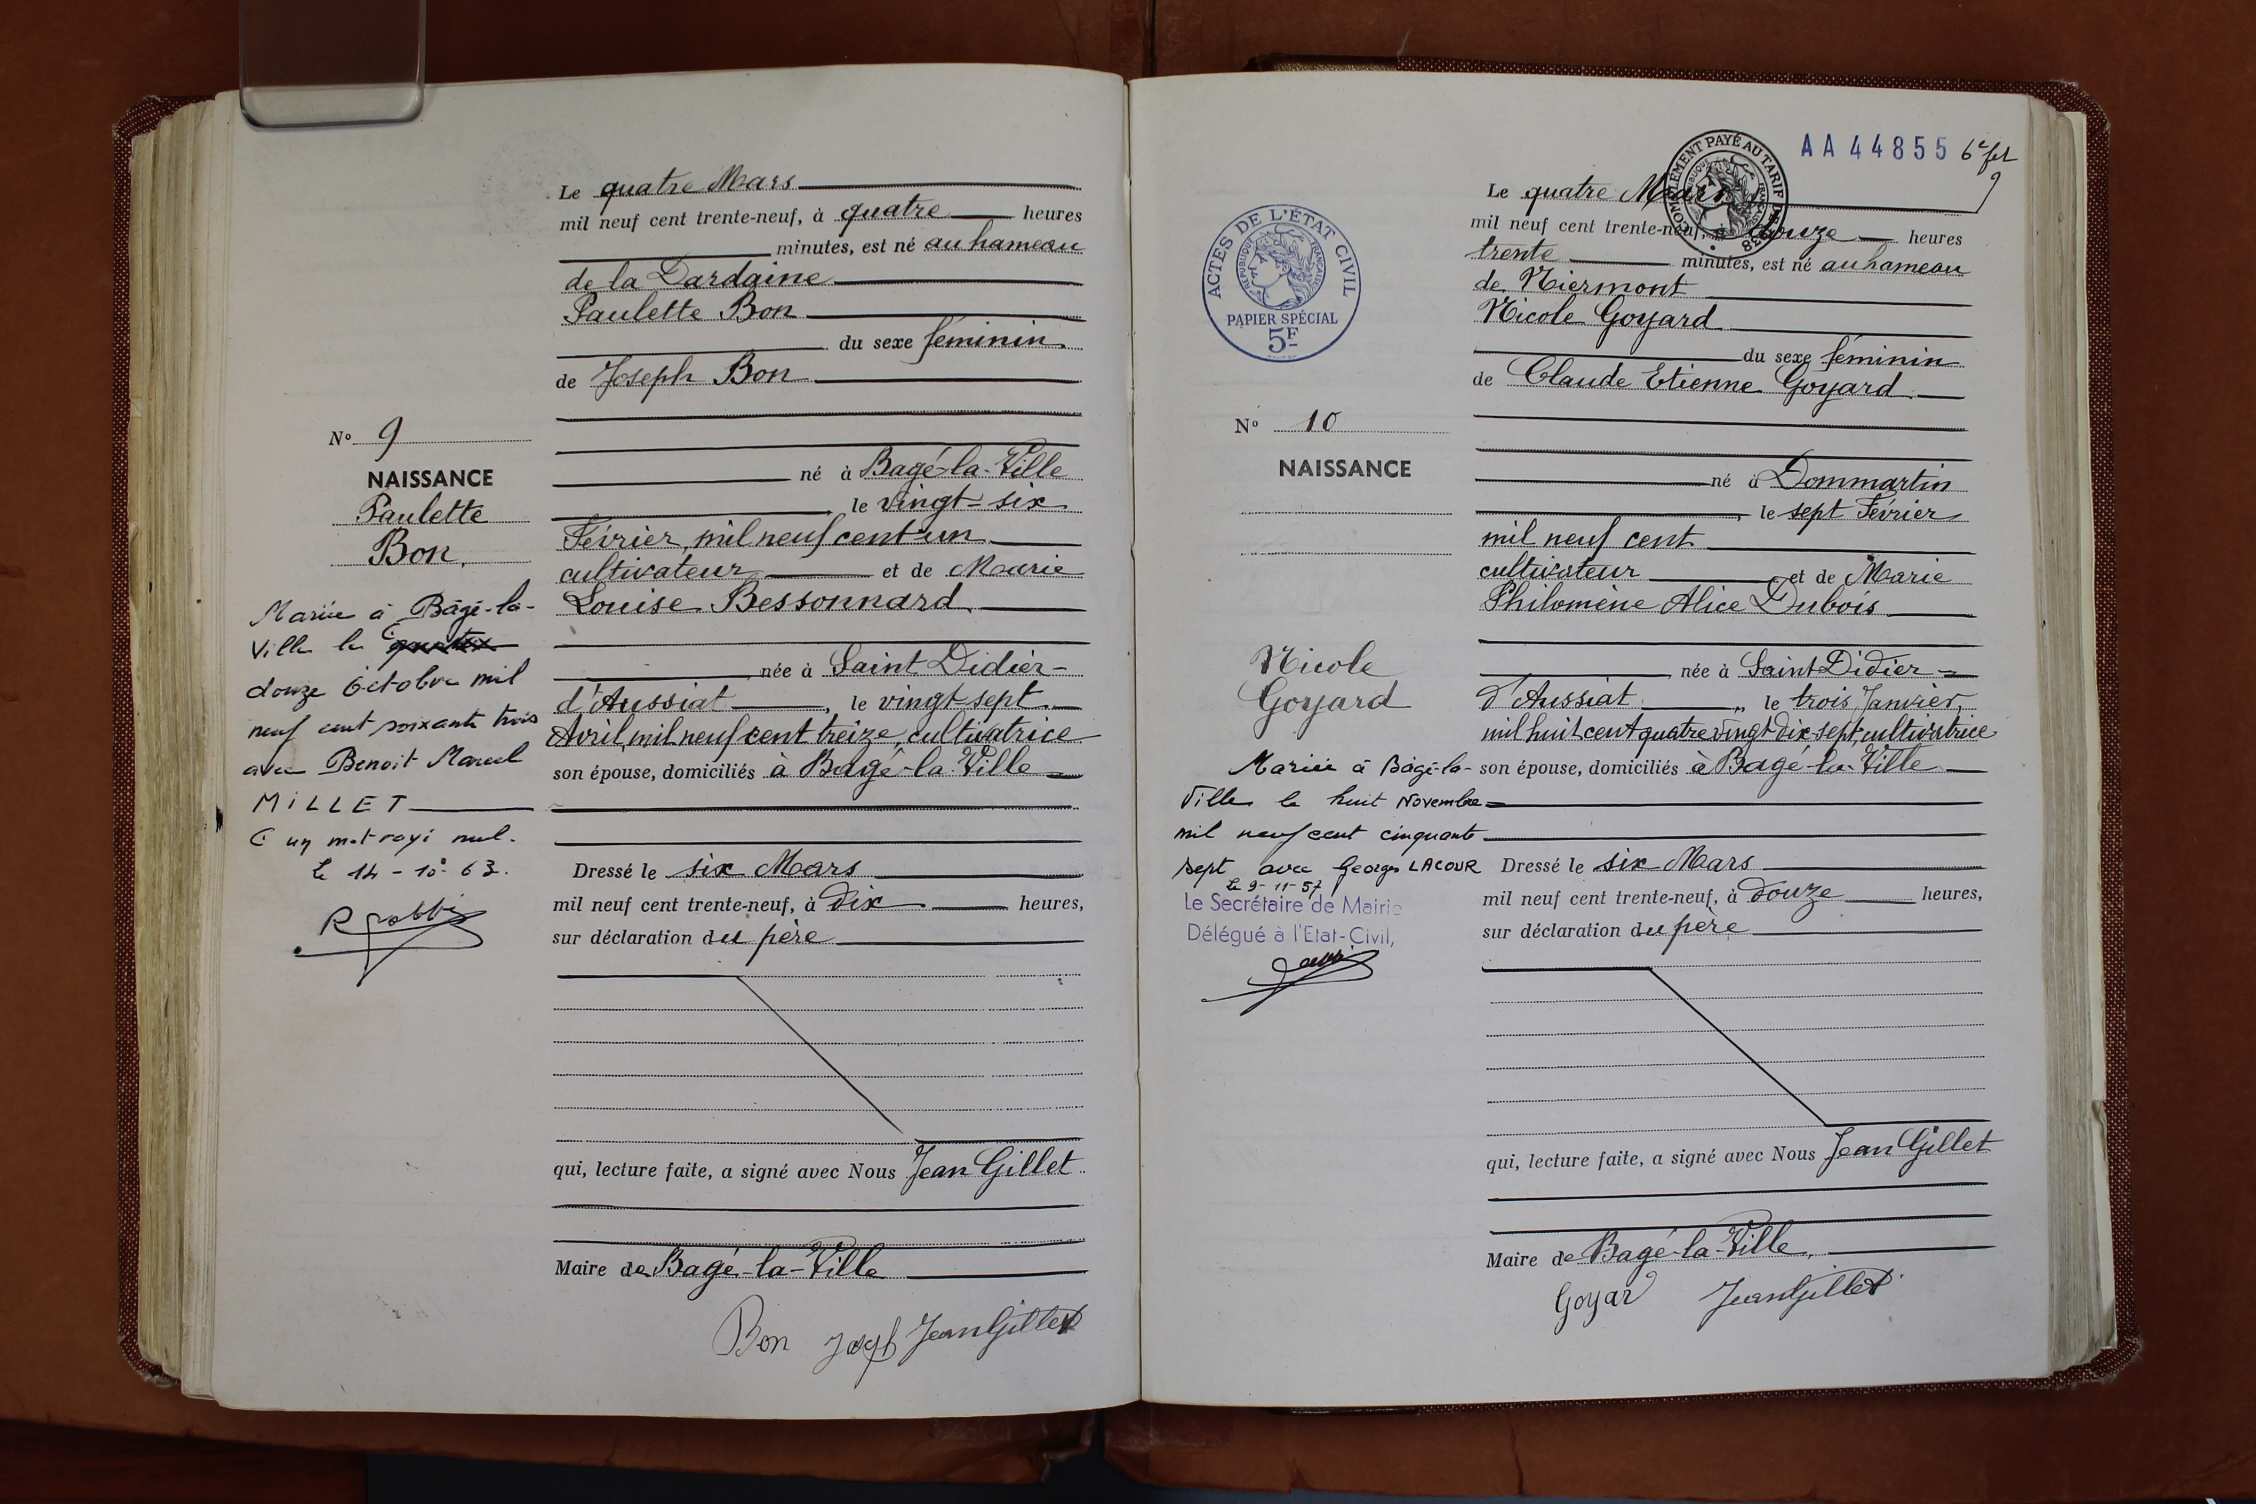 Le quatre Mars
mil neuf cent trente-neuf, à quatre heures
minutes, est né au hameau
de la Dardaine
Paulette Bon
du sexe féminin.
de Joseph Bon
né à Bagé-la-Ville
le vingt-six
Février, mil neuf cent un
cultivateur et de Marie
Louise Bessonnard
née à Saint Didier-
d'Aussiat, le vingt-sept
Avril, mil neuf cent treize, cultivatrice
son épouse, domiciliés à Bagé-la-Ville
Dressé le six Mars
mil neuf cent trente-neuf, à dix heures,
sur déclaration du père
qui, lecture faite, a signé avec Nous Jean Gillet
Maire de Bagé-la-Ville
Bon Joseph Jean Gillet
N° 9
NAISSANCE
Paulette
Bon.
Mariée à Bâgé-la-
Ville le
douze Octobre mil
neuf cent soixante trois
avec Benoit Marcel
MILLET
un mot rayé nul.
Le 14-10-63.
AA 44855 6e fet
9
COMPLÉMENT PAYÉ AU TARIF DE 1938
RÉPUBLIQUE FRANÇAISE
ACTES DE L'ÉTAT CIVIL
RÉPUBLIQUE FRANÇAISE
PAPIER SPÉCIAL
5F
Le quatre Mars
mil neuf cent trente-neuf, à douze heures
trente minutes, est né au hameau
de Niermont
Nicole Goyard
du sexe féminin
de Claude Etienne Goyard
né à Dommartin
, le sept Février
mil neuf cent
cultivateur et de Marie
Philomène Alice Dubois
née à Saint Didier-
d'Aussiat, le trois Janvier,
mil huit cent quatre vingt dix-sept, cultivatrice
son épouse, domiciliés à Bagé-la-Ville
Dressé le six Mars
mil neuf cent trente-neuf, à douze heures,
sur déclaration du père
qui, lecture faite, a signé avec Nous Jean Gillet
Maire de Bagé-la-Ville.
Goyard Jean Gillet
N° 10
NAISSANCE
Nicole
Goyard
Mariée à Bâgé-la-
Ville le huit Novembre
mil neuf cent cinquante
sept avec Georges LACOUR
Le 9-11-57
Le Secrétaire de Mairie
Délégué à l'Etat-Civil,